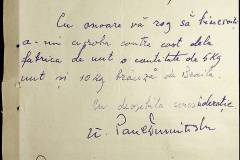 Cu onoare vă rog să binevoiți
a-mi aproba contra cost dela
fabrica de unt o cantitate de 5 Kg
unt și 10 Kg brânză de Braila.
Cu deosebită considerație